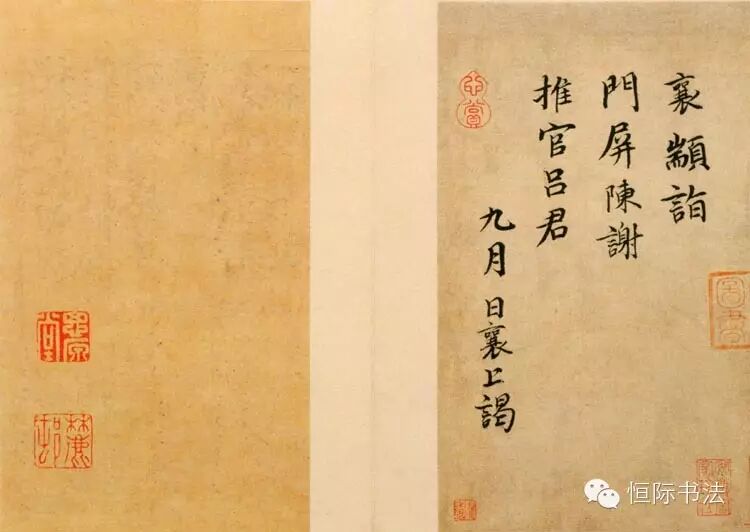 襄顓詣
門屏陳謝
推官呂君
九月 日襄上謁
心賞
恒际书法